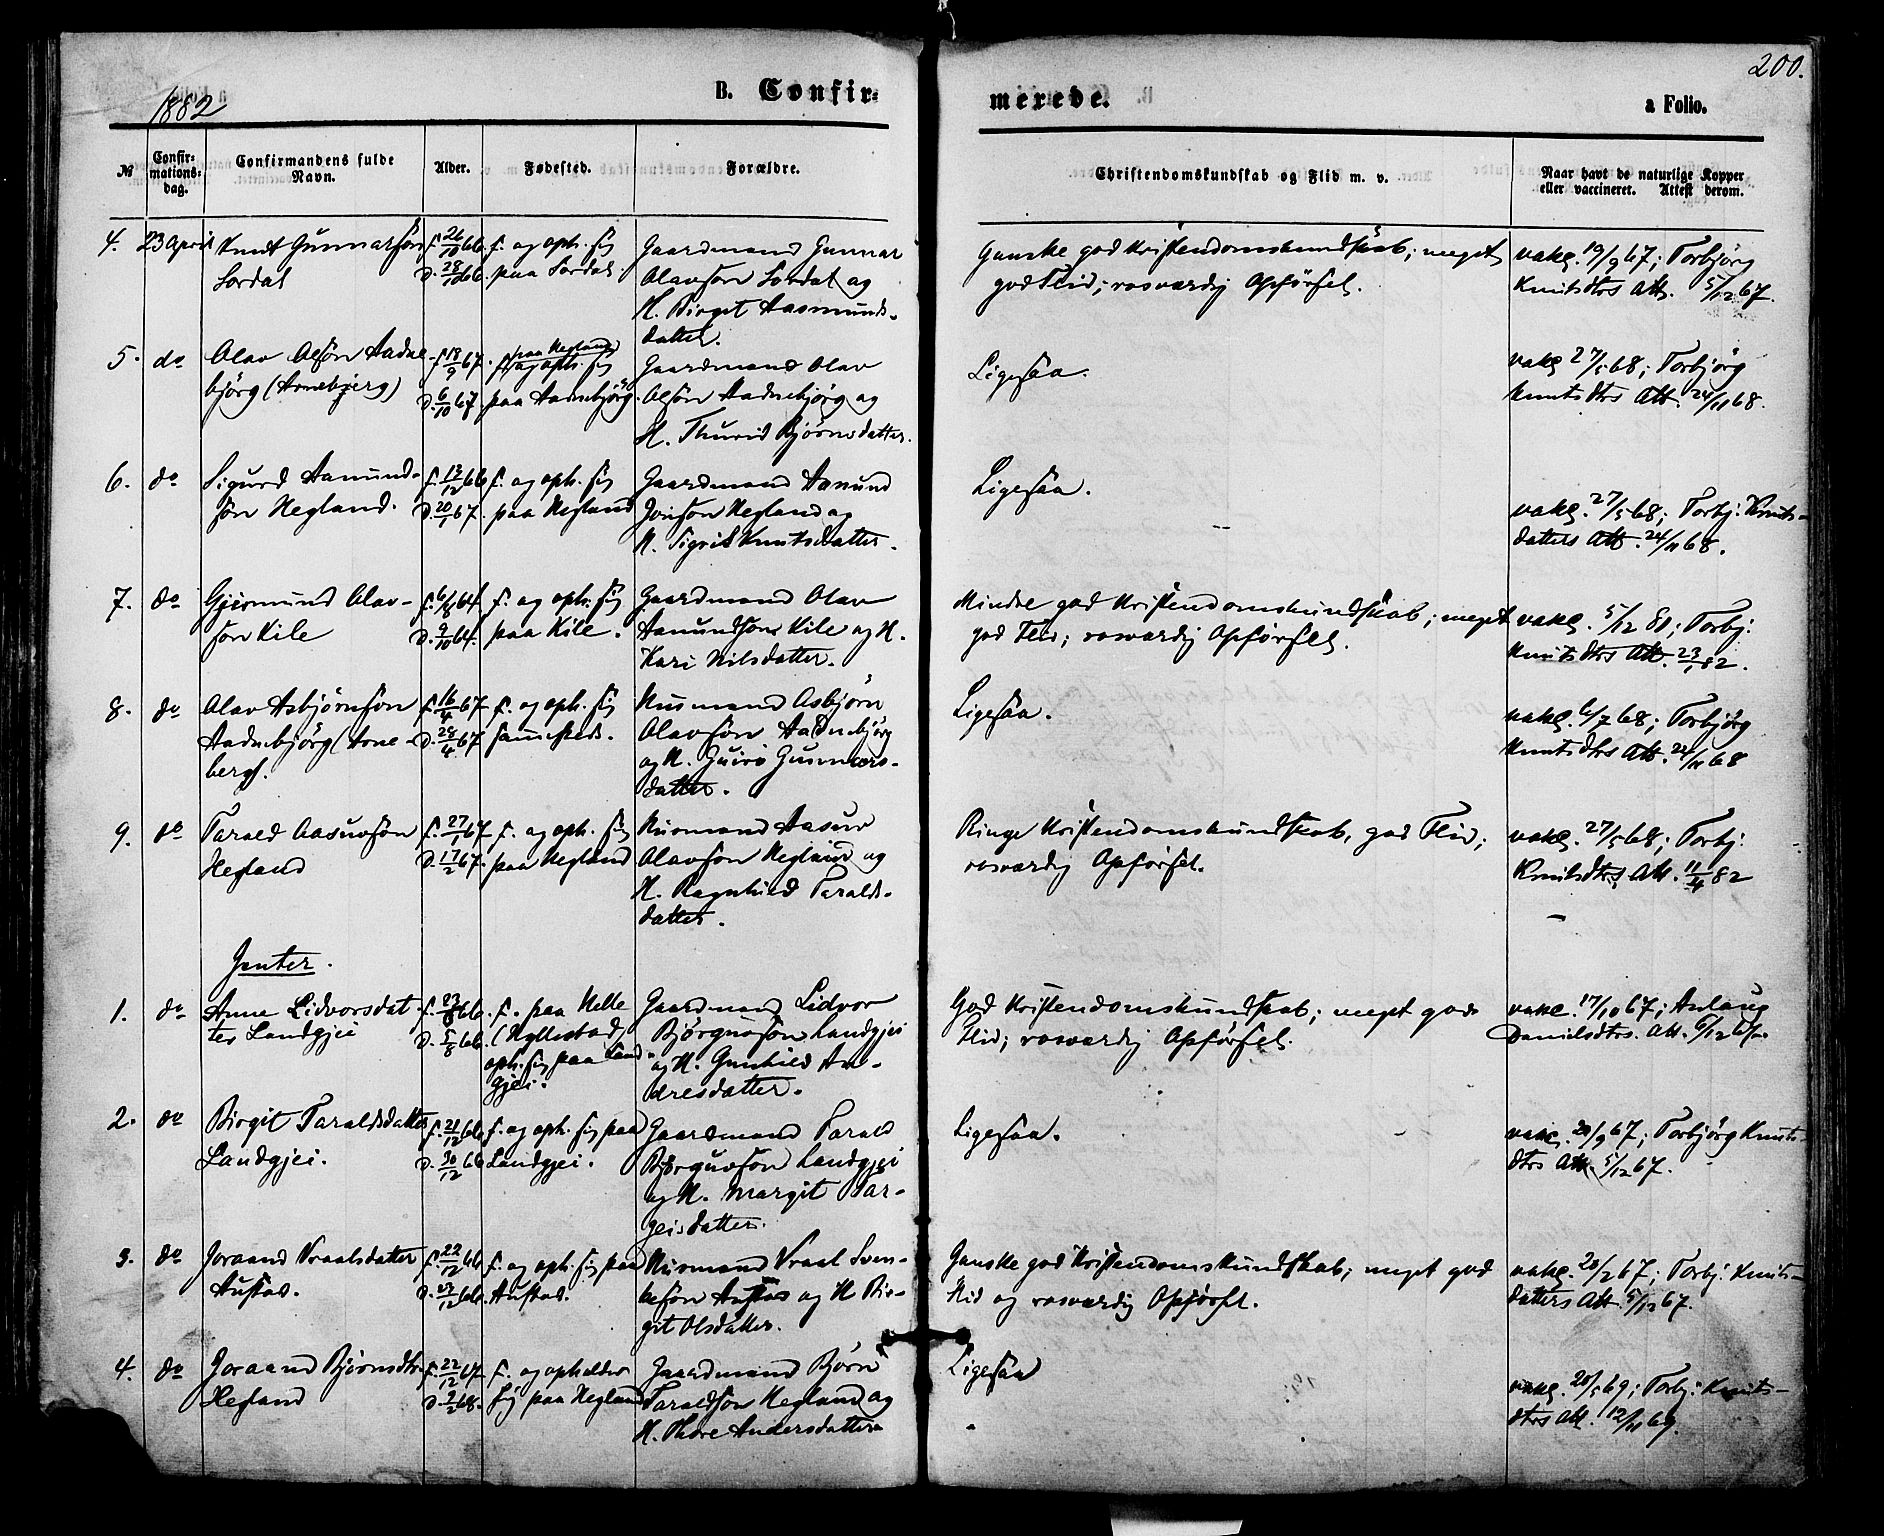 200.
1882
B. Confir-
merede.
a Folio.
№
Confir-
mations-
dag.
Confirmandens fulde
Navn.
Alder.
Fødested.
Forældre.
Christendomskundskab og Flid m. v.
Naar havt de naturlige Kopper
eller vaccineret. Attest derom.
4. 23 April
Knut Gunnarsøn
Sordal
f. 26/10 66.
d. 28/10 66.
f. og oph. sig
paa Sordal
Gaardmand Gunnar
Olavsøn Sordal og
H. Birgit Aasmunds-
datter.
Ganske god Kristendomskundskab; meget
god Flid; rosværdig Opførsel.
vakc. 19/9 67; Torbjörg
Knutsdtrs Att. 5/12 67.
5. do
Olav Olsøn Aadne-
björg (Arnebjerg)
f. 18/9 67.
d. 6/10 67.
f. paa Hegland
og oph. sig
paa Aadnebjörg.
Gaardmand Olav
Olsøn Aadnebjörg og
H. Thurid Bjørnsdatter.
Ligesaa.
vakc 27/5 68; Torbjörg
Knutsdtrs Att. 24/11 68.
6. do
Sigurd Aanund-
søn Hegland.
f. 13/12 66
d. 20/1 67.
f. og oph. sig
paa Hegland
Gaardmand Aanund
Jonsøn Hegland og
H. Sigrid Knutsdatter.
Ligesaa.
vakc. 27/5 68; Torbj. Knuts-
datters Att. 24/11 68.
7. do
Gjermund Olav-
søn Kile
f. 6/8 64.
d. 9/10 64.
f. og oph. sig
paa Kile.
Gaardmand Olav
Aanundsøn Kile og H.
Kari Nilsdatter.
Mindre god Kristendomskundskab; meget
god Flid; rosværdig Opførsel.
vakc. 5/12 81; Torbj:
Knutsdtrs Att. 23/1 82.
8. do
Olav Asbjörnsøn
Aadnebjörg (Arne-
berg).
f. 16/4 67
d. 28/4 67
f. og oph. sig
sammesteds.
Husmand Asbjörn
Olavsøn Aadnebjörg
og H. Guro Gunnars-
datter.
Ligesaa.
vakc. 6/7 68; Torbjörg
Knutsdtrs Att. 24/11 68
9. do
Tarald Aasuvsøn
Hegland
f. 27/1 67
d. 17/2 67.
f. og oph. sig
paa Hegland
Husmand Aasuv
Olavsøn Hegland og
H. Ragnhild Taralds-
datter.
Ringe Kristendomskundskab, god Flid;
rosværdig Opførsel.
vakc. 27/5 68; Torbj:
Knutsdtrs Att. 11/4 82
Jenter.
1. do
Anne Lidvorsdat
ter Landgjei
f. 23/6 66.
d. 5/8 66.
f. paa Helle
(Hyllestad)
oph. sig paa Land-
gjei.
Gaardmand Lidvor
Björguvsøn Landgjei
og H. Gunhild An-
dresdatter.
God Kristendomskundskab; meget god
Flid; rosværdig Opførsel.
vakc. 17/10 67; Aslaug
Danielsdtrs. Att. 6/12 67.
2. do
Birgit Taraldsdatter
Landgjei.
f. 21/12 66
d. 30/12 66
f. og oph. sig paa
Landgjei.
Gaardmand Tarald
Björguvsøn Landgjei
og H. Margit Tar-
geisdatter.
Ligesaa.
vakc. 20/9 67; Torbjörg Knuts-
dtrs Att. 5/12 67.
3. do
Joraand Vraalsdatter
Austad.
f. 22/12 66
d. 23/12 66.
f. og oph. sig paa
Austad.
Husmand Vraal Sven-
kesøn Austad og H Bir-
git Olsdatter.
Ganske god Kristendomskundskab; meget god
Flid og rosværdig Opførsel.
vakc. 20/2 67; Torbj. Knuts-
datters Att. 5/12 67.
4. do
Joraand Bjørnsdtr.
Hegland
f. 22/12 67.
d. 9/2 68.
f. og opholder
sig paa Hegland
Gaardmand Bjørn
Taraldsøn Hegland og
H. Thore Andersdatter
Ligesaa
vakc. 20/5 69; Torbj. Knuts-
dtrs Att. 12/11 69.